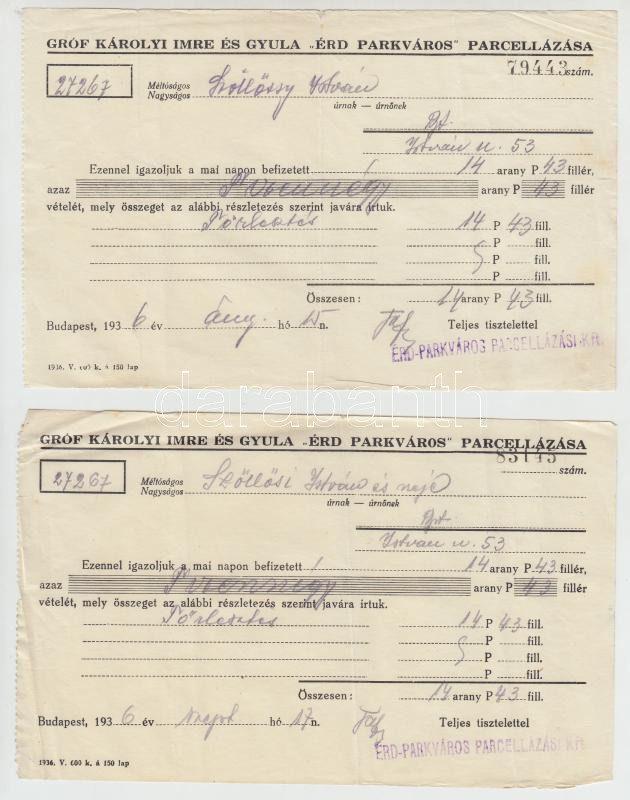 GRÓF KÁROLYI IMRE ÉS GYULA „ÉRD PARKVÁROS" PARCELLÁZÁSA
27267
79443 szám.
Méltóságos
Nagyságos Szöllőssy István
úrnak — úrnőnek
Bp.
István u. 53
Ezennel igazoljuk a mai napon befizetett 14 arany P 43 fillér,
azaz Tizennégy arany P 43 fillér
vételét, mely összeget az alábbi részletezés szerint javára írtuk.
Törlesztés 14 P 43 fill.
P fill.
P fill.
P fill.
Összesen: 14 arany P 43 fill.
Budapest, 193 6 év hó 15 n. Teljes tisztelettel
ÉRD-PARKVÁROS PARCELLÁZÁSI KFT.
1936. V. 600 k. á 150 lap
darabanth
GRÓF KÁROLYI IMRE ÉS GYULA „ÉRD PARKVÁROS" PARCELLÁZÁSA
27267
83145 szám.
Méltóságos
Nagyságos Szöllősi István és neje
úrnak — úrnőnek
Bp.
István u. 53
Ezennel igazoljuk a mai napon befizetett 14 arany P 43 fillér,
azaz Tizennégy arany P 43 fillér
vételét, mely összeget az alábbi részletezés szerint javára írtuk.
Törlesztés 14 P 43 fill.
P fill.
P fill.
P fill.
Összesen: 14 arany P 43 fill.
Budapest, 193 6 év szept hó 17 n. Teljes tisztelettel
ÉRD-PARKVÁROS PARCELLÁZÁSI KFT.
1936. V. 600 k. á 150 lap